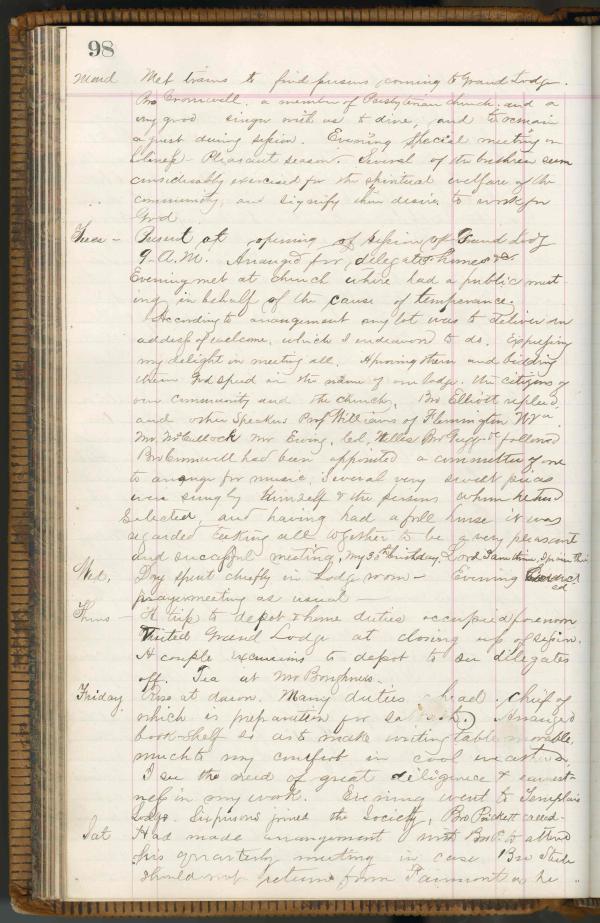 98
Mond Met trains to find persons coming to Grand Lodge.
Bro Cromwell. a member of Presbyterian church. and a
very good singer with us to dine, and to remain
a guest during session. Evening special meeting on
Pleasant season. Several of the brethren seem
considerably exercised for the spiritual welfare of the
community, and signify their desire to work for
God
Tues – Present at opening of session of Grand Lodg
9. A.M. Arranged for delegates homes &c
Evening met at church where had a public meet-
ing in behalf of the cause of temperance.
According to arrangement my lot was to deliver an
address of welcome, which I endeavored to do. Expressing
my delight in meeting all. them and bidding
them God speed in the name of our lodge. the citizens of
our community and the church. Bro Elliott replied,
and other speakers Prof Williams of Flemington W Va.
Mr. McCullock Mr Ewing, Col, followed
Bro Cromwell had been appointed a committee of one
to arrange for music, Several very sweet pieces
were sung by Himself & the persons whom he had
Selected, and having had a full house it was
regarded taking all together to be a very pleasant
and successful meeting, My 30th birthday, Lord I am thine,
Wed, Day spent chiefly in Lodge room – Evening
prayermeeting as usual –
Thurs – A trip to depot & home duties occupied forenoon
Visited Grand Lodge at closing up of session.
A couple excursions to depot to see delegates
off. Tea at Mr
Friday Rose at dawn. Many duties ahead. chief of
which is preparation for Arranged
book-shelf so as to make writing table movable,
much to my comfort in cool weather,
I see the need of great diligence & earnest-
ness in my work. Evening went to Templars
Lodge. Six persons joined the Society, Bro Pickett
Sat Had made arrangement with Bro P. to attend
his quarterly meeting in case Bro
should not return from Fairmont as he